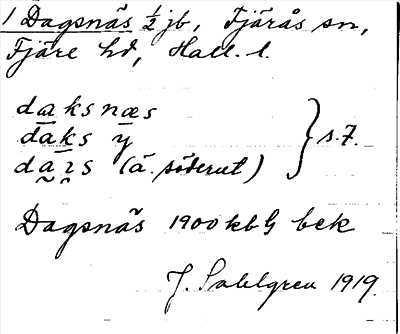 1 Dagsnäs ½ jb, Fjärås sn,
Fjäre hd, Hall. l.
daksnæs
daks y
dais (ä. söderut) } s. 7.
Dagsnäs 1900 kbG bek
J. Sahlgren 1919.